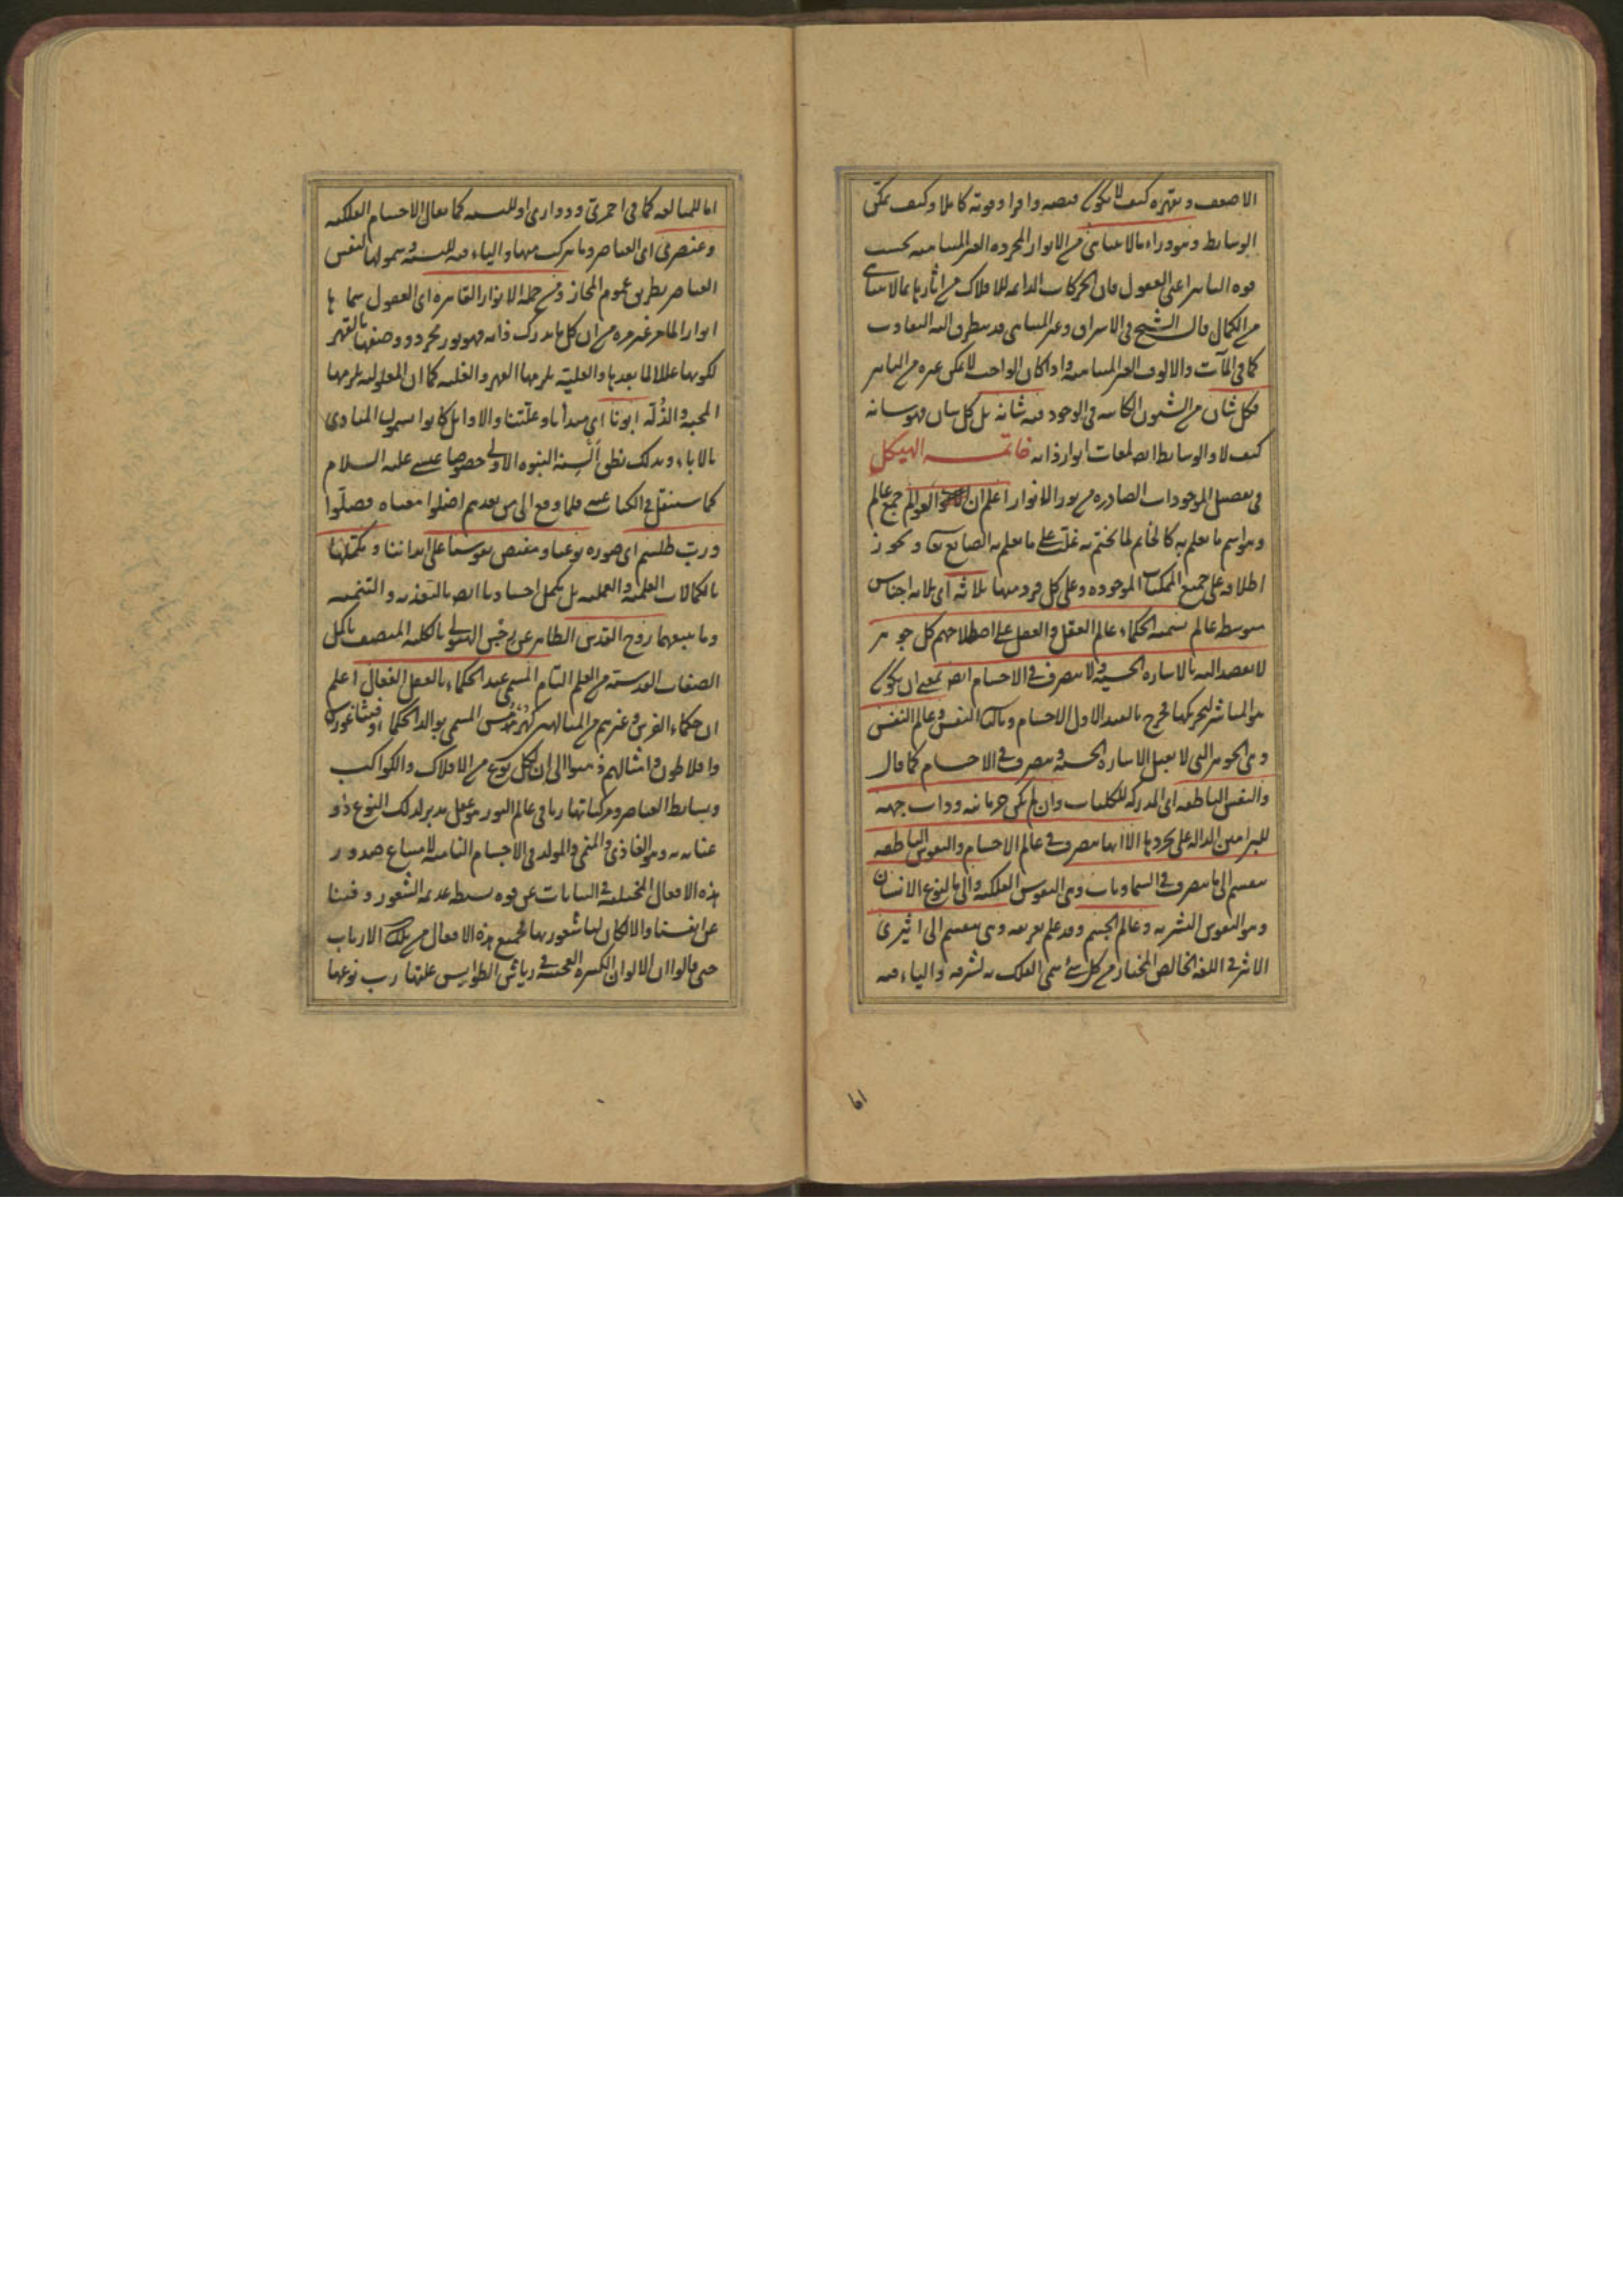 الاضعف ويقهره كيف لا يكون فيضه وافرا وقوته كاملا وكيف يمكن
الوسايط وهو وراء ما لا يتناهى من الانوار المجرده الغير المتناهيه بحسب
قوه التاثير اعنى العقول فان الحركات الدائمه للافلاك من اثارها بما لا يتناهى
من الكمال قال الشيخ فى الاشراق وغير المتناهى قد يتطرق اليه التفاوت
كما فى المآت والالوف الغير المتناهيه واذا كان الواحد لا يمكن غيره من التاثير
فكل شان من الشئون الكائنه فى الوجود فيه شانه بل كل شان فهو شانه
كيف لا والوسايط ايضا لمعات انوار ذاته خاتمــه الهيكل
فى تفصيل الموجودات الصادره من نور الانوار اعلم ان العوالم جمع عالم
وهو اسم ما يعلم به كالخاتم لما يختم به غلّب على ما يعلم به الصانع تعالى ويجوز
اطلاقه على جميع الممكنات الموجوده وعلى كل فرد منها ثلاثه اى ثلاثه اجناس
متوسطه عالم تسميه الحكماء عالم العقل والعقل على اصطلاحهم كل جوهر
لا يقصد اليه بالاشاره الحسيه ولا يتصرف فى الاجسام ايضا بمعنى ان يكون
هو المباشر لتحريكها فخرج بالقيد الاول الاجسام وبالثانى النفس وعالم النفس
وهى الجوهر التى لا يقبل الاشاره الحسيه ويتصرف فى الاجسام كما قال
والنفس الناطقه اى المدركه للكليات وان لم يكن جرمانيه وذات جهه
للبراهين الداله على تجردها الا انها يتصرف فى عالم الاجسام والنفوس الناطقه
ينقسم الى ما يتصرف فى السماويات وهى النفوس الفلكيه والى ما لنوع الانسان
وهو النفوس البشريه وعالم الجسم وقد علم تعريفه وهى ينقسم الى اثيرى
الاثير فى اللغه الخالص المختار من كل شئ سمى الفلك به لشرفه والياء فيه
اما
اما للمبالغه كما فى احمرى ودوارى او للنسبه كما يقال الاجسام الفلكيه
وعنصرى اى العناصر وما يتركب منها والياء فيه للنسبه وشمولها لنفس
العناصر بطريق عموم المجاز ومن جمله الانوار القاهره اى العقول سماها
انوارا لما مر غير مره من ان كل ما يدرك ذاته فهو نور مجرد ووصفها بالقهر
لكونها عللا لما بعدها والعليه يلزمها القهر والغلبه كما ان المعلوليه يلزمها
المحبه والذله ابونا اى مبدأنا وعلّتنا والاوايل كانوا يسمون المبادى
بالاباء وبذلك نطق ألسنه النبوه الاولى خصوصا عيسى عليه السلام
كما سننقل فى الكتاب عنه فلما وقع الى من بعدهم اضلوا معناه فضلّوا
وربّ طلسم اى صوره نوعنا ومفيض نفوسنا على ابداننا ومكملها
بالكمالات العلميه والعمليه بل مكمل اجسادنا ايضا بالتغذيه والتنميه
وما يتبعهما روح القدس الطاهر عن رجس الهيولى بالكليه المتصف باكمل
الصفات القدسيه من العلم التام المسمى عند الحكماء بالعقل الفعال اعلم
ان حكماء الفرس وغيرهم من المتالهين كهرمس المسمى بوالد الحكما وفيثاغورس
وافلاطون وامثالهم ذهبوا الى ان لكل نوع من الافلاك والكواكب
وبسايط العناصر ومركباتها ربا فى عالم النور هو عقل مدبر لذلك النوع ذو
عنايه به وهو الغاذى والمنمى والمولد فى الاجسام الناميه لامتناع صدور
هذه الافعال المختلفه فى النباتات عن قوه بسيطه عديمه الشعور وفينا
عن انفسنا والا لكان لها شعور بها فجميع هذه الافعال من تلك الارباب
حتى قالوا ان الالوان الكثيره العجيبه فى رياش الطواويس علتها رب نوعها